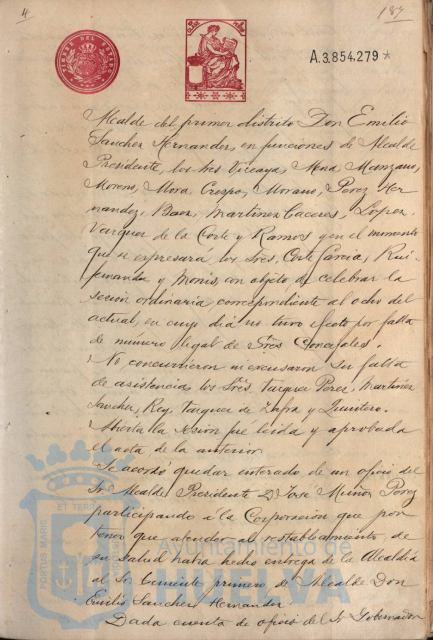 4
187
A.3.854.279*
Alcalde del primer distrito Don Emilio
Sanchez Hernandez, en funciones de Alcalde
Presidente, los Sres Vizcaya, Mena, Manzano,
Moreno, Mora, Crespo, Morano, Perez Her-
nandez, Baez, Martinez Caceres, Lopez,
Vazquez de la Corte y Ramos y en el momento
que se expresará, los Sres, Corte Garcia, Rui-
fernandez y Monis, con objeto de celebrar la
sesion ordinaria correspondiente al ocho del
actual, en cuyo dia no tuvo efecto por falta
de número legal de Sres Concejales.
No concurrieron ni excusaron su falta
de asistencia los Sres. Vazquez Perez, Martinez
Sanchez, Rey, Vazquez de Zafra y Quintero.
Abierta la sesion fue leida y aprobada
el acta de la anterior.
Se acordó quedar enterado de un oficio del
Sr. Alcalde Presidente D. José Muñoz Perez
participando á la Corporacion que por
tener que atender al restablecimiento de
su salud habia hecho entrega de la Alcaldia
al Sr. Teniente primero de Alcalde Don
Emilio Sanchez Hernandez.
Dada cuenta de oficio del Sr Gobernador
Ayuntamiento de
HUELVA
PORTUS MARIS
ET TERRAE